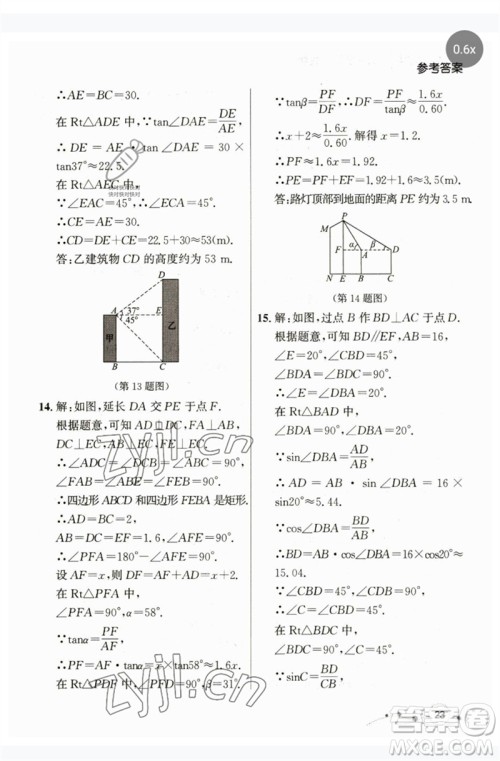 0.6x
参考答案
∴AE=BC=30.
在 Rt△ADE 中, tan∠DAE=DE/AE,
∴DE = AE · tan∠DAE = 30 ×
tan37°≈22.5.
在 Rt△AEC 中,
∵∠EAC=45°,
∴CE=AE=30.
∴CD=DE+CE=22.5+30≈53(m).
答:乙建筑物 CD 的高度约为 53 m.
D
A 37° E
45°
甲
乙
B C
(第 13 题图)
14. 解:如图,延长 DA 交 PE 于点 F.
根据题意,可知 DA⊥PE, DA⊥AB,
DC⊥EC, AB⊥EC, PE⊥EC,
∴∠ADC=∠DCB=∠ABC=90°,
∠AFE=∠E=∠ABE=90°.
∴四边形 ABCD 和四边形 FEBA 是矩形.
∴AD=BC=2,
AB=DC=EF=1.6,∠AFE=90°.
∴∠PFA=180°-∠AFE=90°.
设 AF=x,则 DF=AF+AD=x+2.
在 Rt△PFA 中,
∠PFA=90°,α=58°.
∵tanα=PF/AF,
∴PF=AF·tanα=x×tan58°≈1.6x.
在 Rt△PDF 中,∠PFD=90°,β=31°,
∵tanβ=PF/DF, ∴DF=PF/tanβ≈1.6x/0.60.
∴x+2=1.6x/0.60. 解得 x=1.2.
∴PF≈1.6x=1.92.
∴PE=PF+EF=1.92+1.6≈3.5(m).
答:路灯顶部到地面的距离 PE 约为 3.5 m.
P
F α A β D
N E B C
(第 14 题图)
15. 解:如图,过点 B 作 BD⊥AC 于点 D.
根据题意,可知 BD∥EF,AB=16,
∠E=20°,∠F=45°,
∠BDA=∠BDC=90°.
∴∠DBA=∠E=20°,
∠CBD=∠F=45°.
在 Rt△ABD 中,∠BDA=90°,
∵sin∠DBA=AD/AB,
∴AD=AB·sin∠DBA=16×
sin20°≈5.44.
∵cos∠DBA=BD/AB,
∴BD=AB·cos∠DBA=16×cos20°≈
15.04.
∵∠CBD=45°,∠BDC=90°,
∴∠C=90°-∠CBD=45°.
在 Rt△BCD 中,∠BDC=90°,
∵sinC=BD/CB,
23
快对快对快对
快对快对快对
zyjl.cn
zyjl.cn
答案圈
MXQE.COM